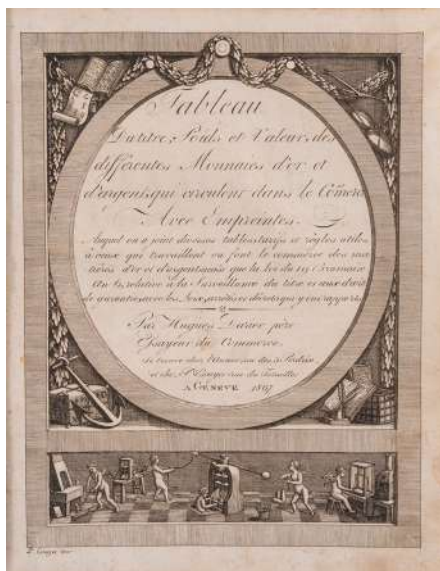 Tableau
Du titre, Poids et Valeur, des
différentes Monnaies d'or et
d'argent, qui circulent dans le Com̃erce
Avec Empreintes.
Auquel on a joint diverses tables, tarifs et règles utiles
à ceux qui travaillent ou font le commerce des ma
tières d'or et d'argent, ainsi que la loi du 19 Brumaire
An 6, relative à la Surveillance du titre et aux droits
de garantie, avec les Arrêtés et décrets qui y ont rapport.
Par Hugues Darier père
Essayeur du Commerce.
se trouve chez l'Auteur rue des
et chez
A GENEVE 1807